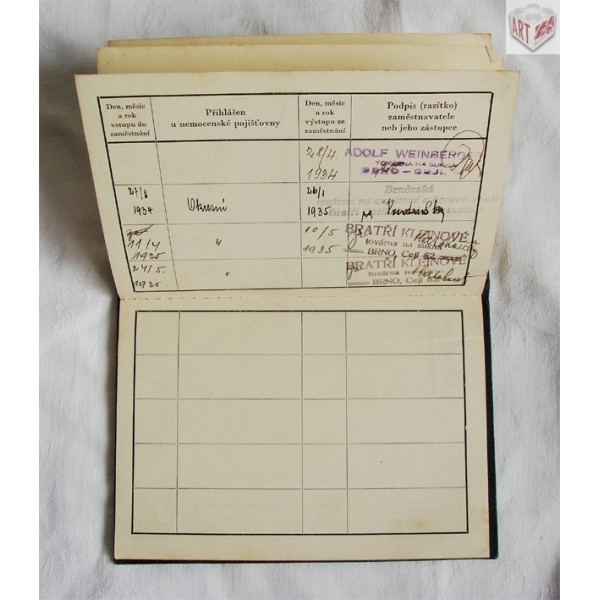 ART
Den, měsíc
a rok
vstupu do
zaměstnání
Přihlášen
u nemocenské pojišťovny
Den, měsíc
a rok
výstupu ze
zaměstnání
Podpis (razítko)
zaměstnavatele
neb jeho zástupce
28/4
1934
ADOLF WEINBERGER
TOVÁRNA NA SUKNA
BRNO - CEJL
27/8
1934
Okresní
26/1
1935
Brněnská
11/4
1935
"
10/5
1935
BRATŘI KLEINOVÉ
továrna na sukna
BRNO, Cejl 62
24/5
1935
"
BRATŘI KLEINOVÉ
továrna na
BRNO, Cejl 62